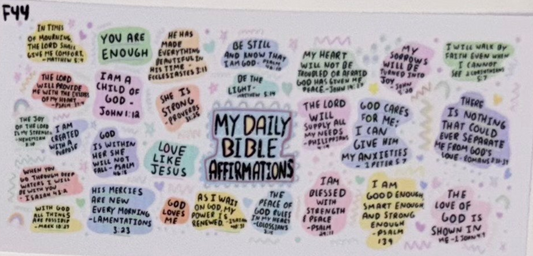 F44
IN TIMES
OF MOURNING
THE LORD SHALL
GIVE ME COMFORT.
-MATTHEW 5:4
YOU ARE
ENOUGH
HE HAS
MADE
EVERYTHING
BEAUTIFUL IN
HIS TIME -
ECCLESIASTES 3:11
BE STILL
AND KNOW THAT
I AM GOD-
MY HEART
WILL NOT BE
TROUBLED OR AFRAID
GOD HAS GIVEN ME
PEACE-JOHN 14:27
MY
SORROWS
WILL BE
TURNED INTO
JOY
I WILL WALK BY
FAITH EVEN WHEN
I CANNOT
SEE 2 CORINTHIANS
5:7
THE LORD
WILL
PROVIDE ME
WITH THE DESIRES
OF MY HEART-
I AM A
CHILD OF
GOD -
JOHN 1:12
SHE IS
STRONG
-PROVERBS
31:25
OF THE
LIGHT-
MATTHEW 5:14
MY DAILY
BIBLE
AFFIRMATIONS
THE LORD
WILL
SUPPLY ALL
MY NEEDS
-PHILIPPIANS
GOD CARES
FOR ME;
I CAN
GIVE HIM
MY ANXIETIES
-1 PETER 5:7
THERE
IS NOTHING
THAT COULD
EVER SEPARATE
ME FROM GOD'S
LOVE-ROMANS
THE JOY
OF THE LORD
IS MY STRENGTH
-NEHEMIAH
8:10
I AM
CREATED
WITH A
PURPOSE
GOD
IS WITHIN
HER SHE
WILL NOT
FALL-PSALM
46:5
LOVE
LIKE
JESUS
WHEN YOU
GO THROUGH DEEP
WATERS I WILL
BE WITH YOU
-ISAIAH 43:2
WITH GOD
ALL THINGS
ARE POSSIBLE
-MARK 10:27
HIS MERCIES
ARE NEW
EVERY MORNING
LAMENTATIONS
3:23
GOD
LOVES
ME
AS I WAIT
ON GOD, MY
POWER IS
RENEWED.
THE
PEACE OF
GOD RULES
IN MY HEART
-COLOSSIANS
I AM
BLESSED
WITH
STRENGTH
& PEACE
-PSALM
29:11
I AM
GOOD ENOUGH
SMART ENOUGH
AND STRONG
ENOUGH
-PSALM
139
THE
LOVE OF
GOD IS
SHOWN IN
ME-1 JOHN